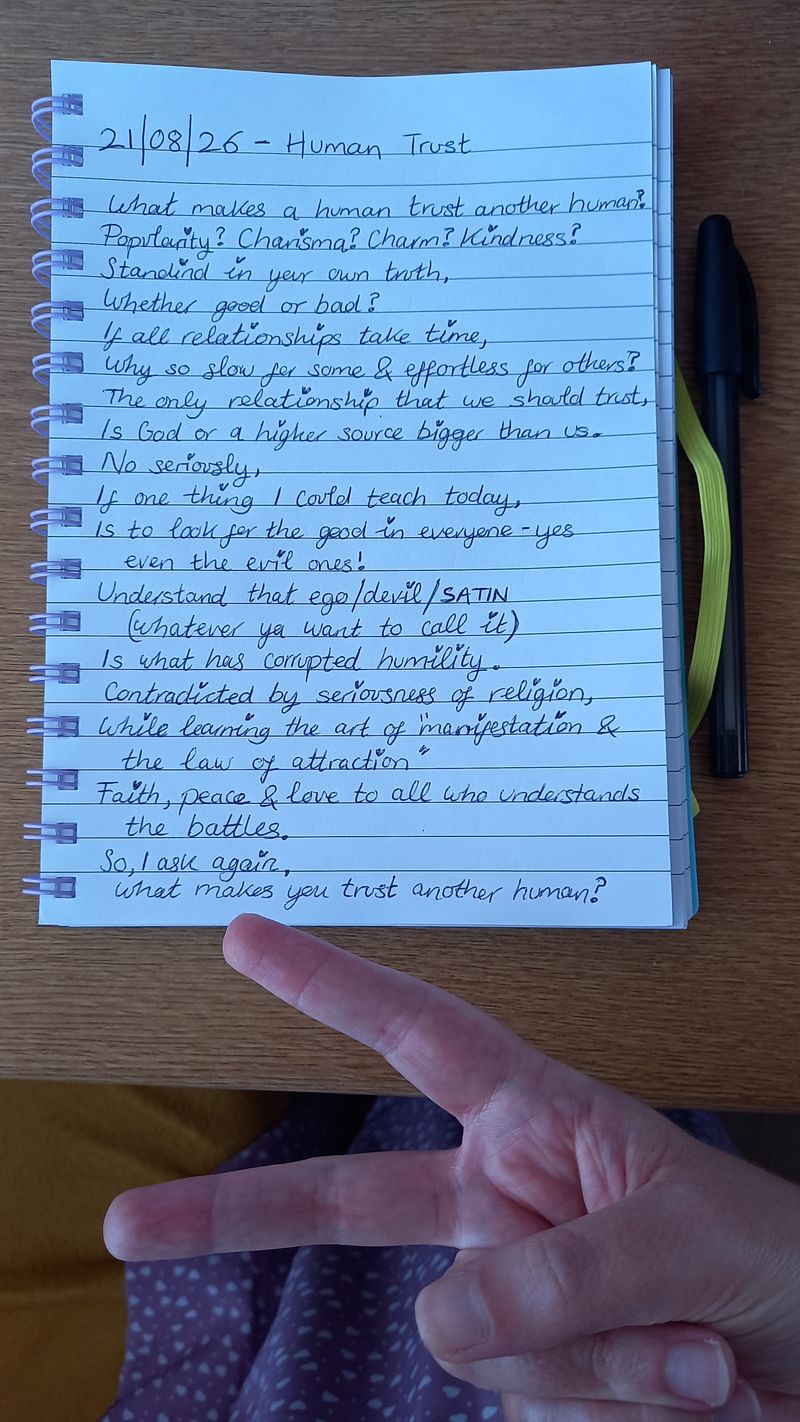 21/08/26 - Human Trust
What makes a human trust another human?
Popularity? Charisma? Charm? Kindness?
Standind in your own truth,
Whether good or bad?
If all relationships take time,
Why so slow for some & effortless for others?
The only relationship that we should trust,
Is God or a higher source bigger than us.
No seriously,
If one thing I could teach today,
Is to look for the good in everyone - yes
even the evil ones!
Understand that ego/devil/SATIN
(whatever ya want to call it)
Is what has corrupted humility.
Contradicted by seriousness of religion,
While learning the art of "manifestation &
the law of attraction"
Faith, peace & love to all who understands
the battles.
So, I ask again,
What makes you trust another human?